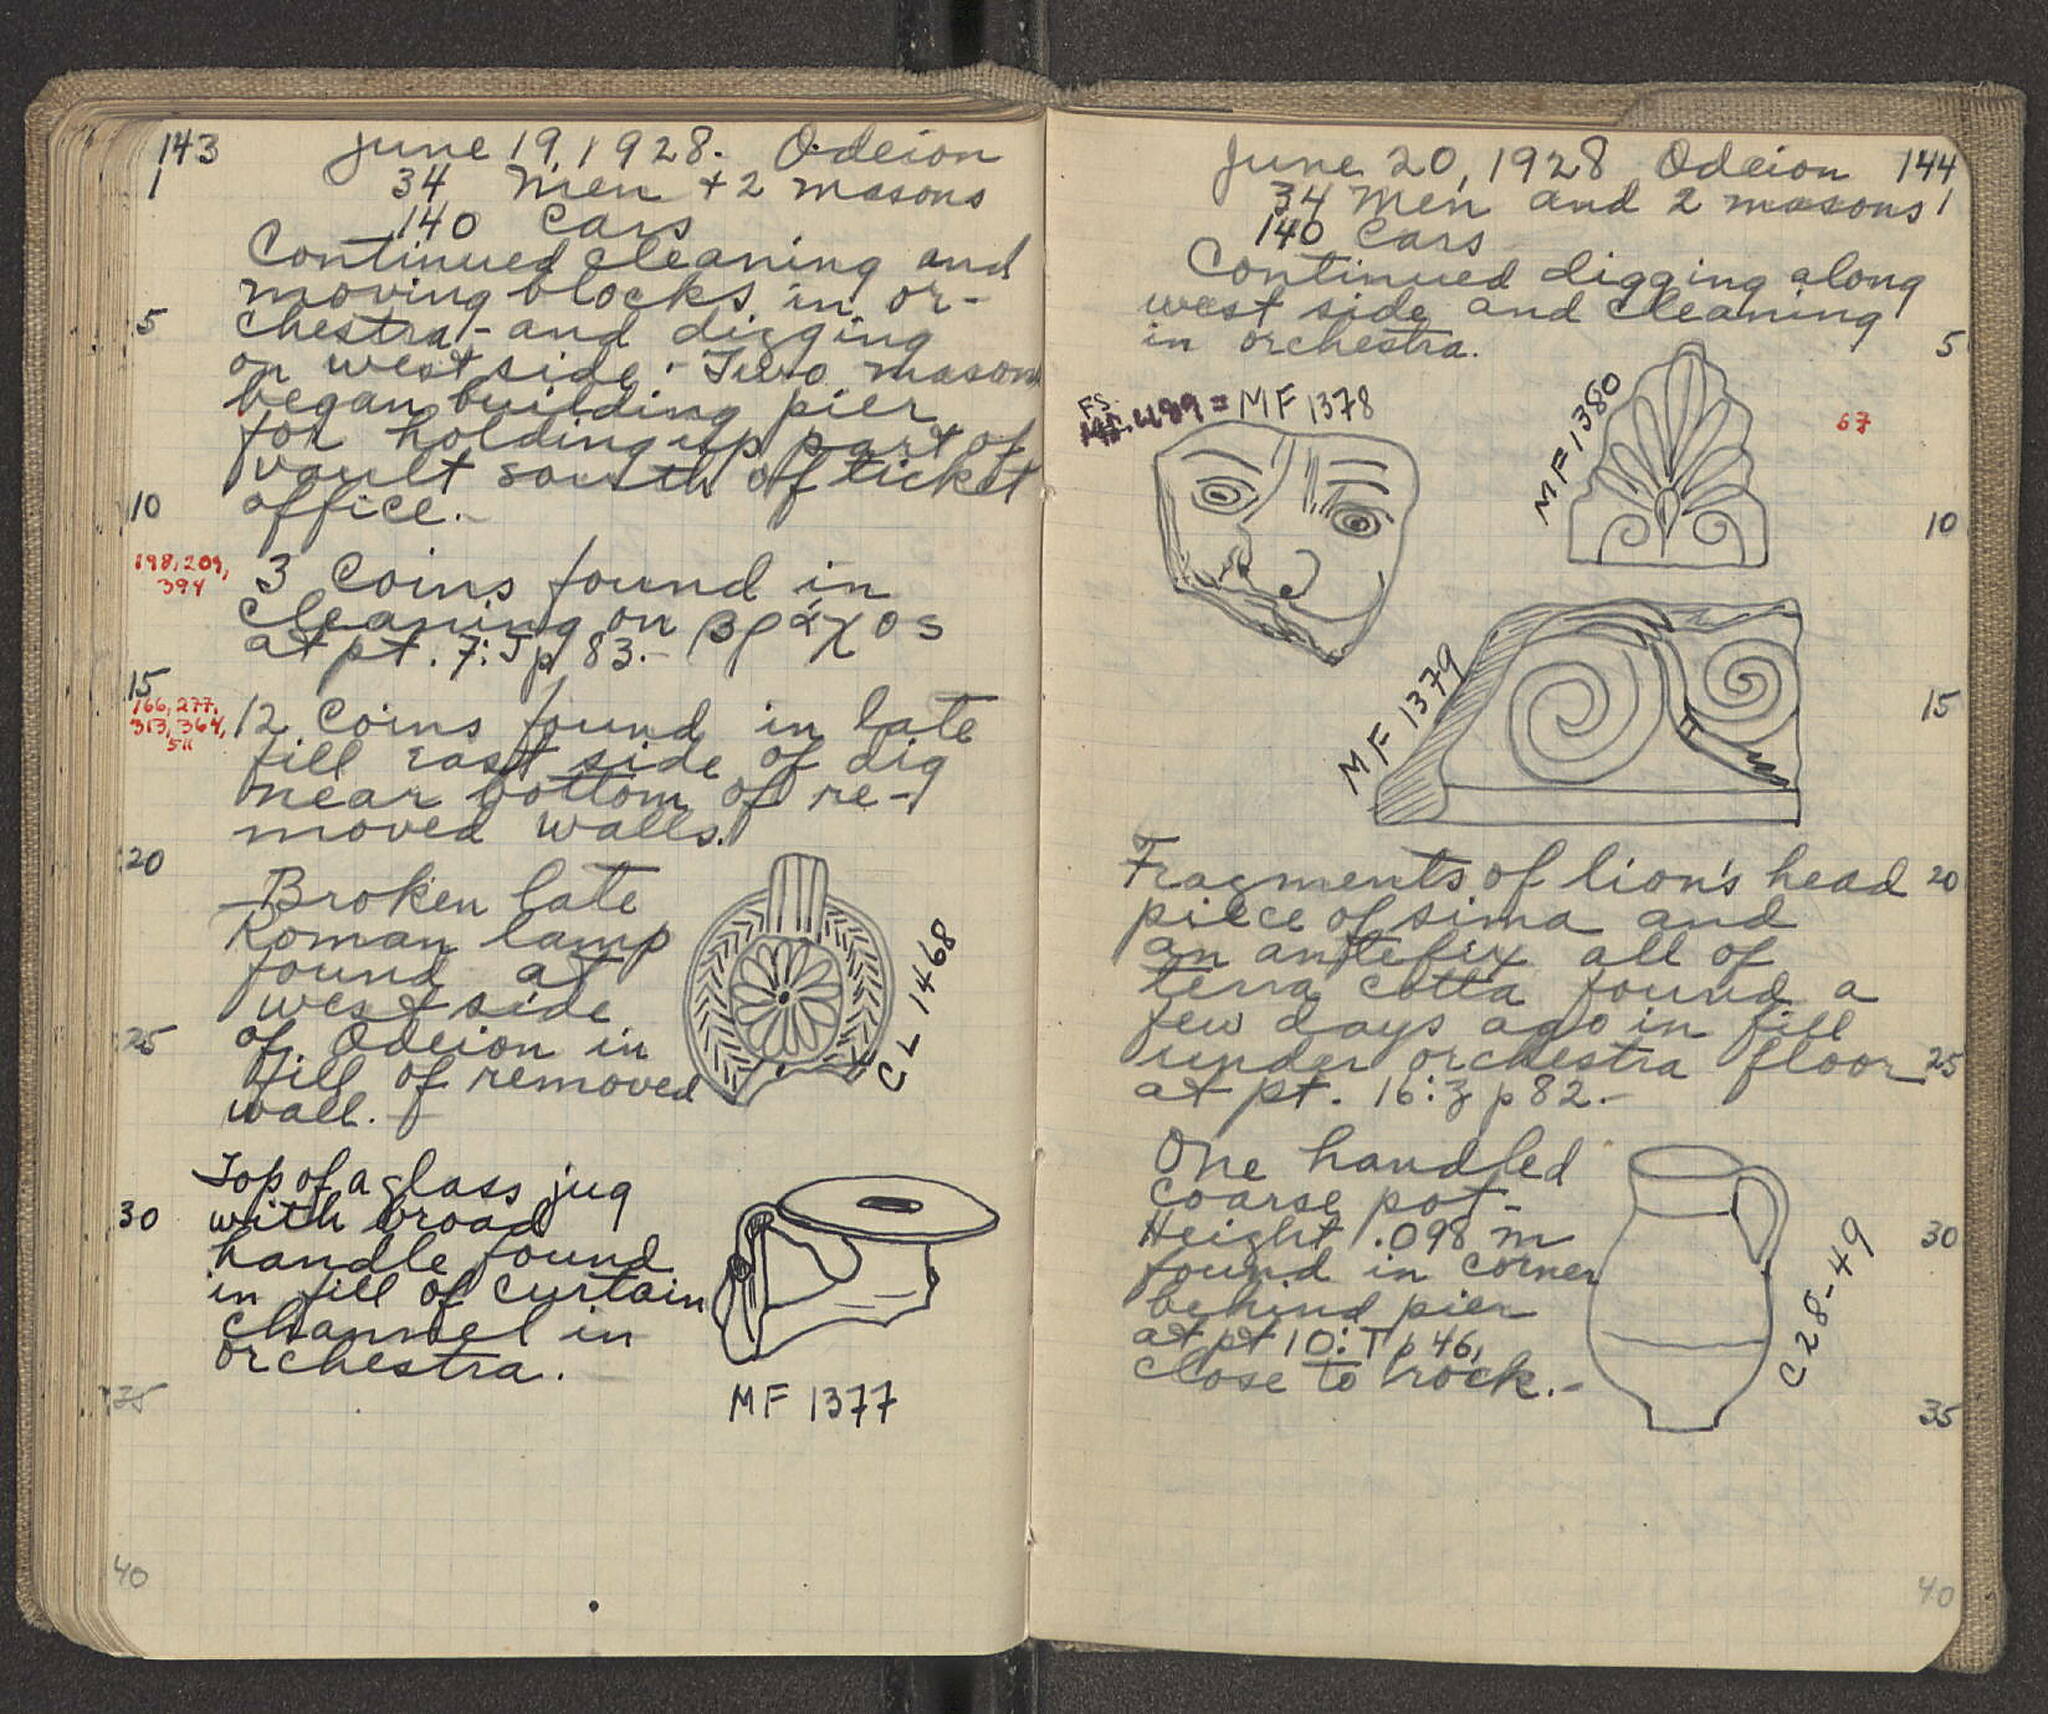 143
June 19, 1928. Odeion
1
34 men + 2 masons
140 cars
Continued cleaning and
moving blocks in or-
5
chestra - and digging
on west side. - Two masons
began building pier
for holding up part of
vault south of ticket
10
office. -
198, 209,
394
3 Coins found in
cleaning on βράχος
at pt. 7:J p 83. -
15
166, 277,
313, 364,
511
12 Coins found in late
fill east side of dig
near bottom of re-
moved walls.
20
Broken late
Roman lamp
found at
west side
25
of Odeion in
fill of removed
wall. -
CL 1468
Top of a glass jug
30
with broad
handle found
in fill of curtain
channel in
orchestra.
35
MF 1377
40
June 20, 1928 Odeion 144
34 Men and 2 masons 1
140 Cars
Continued digging along
west side and cleaning
in orchestra. 5
FS. 489 = MF 1378
MF 1380
67
10
MF 1379
15
Fragments of lion's head 20
piece of sima and
an antefix all of
terra cotta found a
few days ago in fill
under orchestra floor 25
at pt. 16:z p 82. -
One handled
coarse pot -
Height .098 m 30
found in corner
behind pier
at pt 10:T p 46,
close to rock. -
C 28-49
35
40